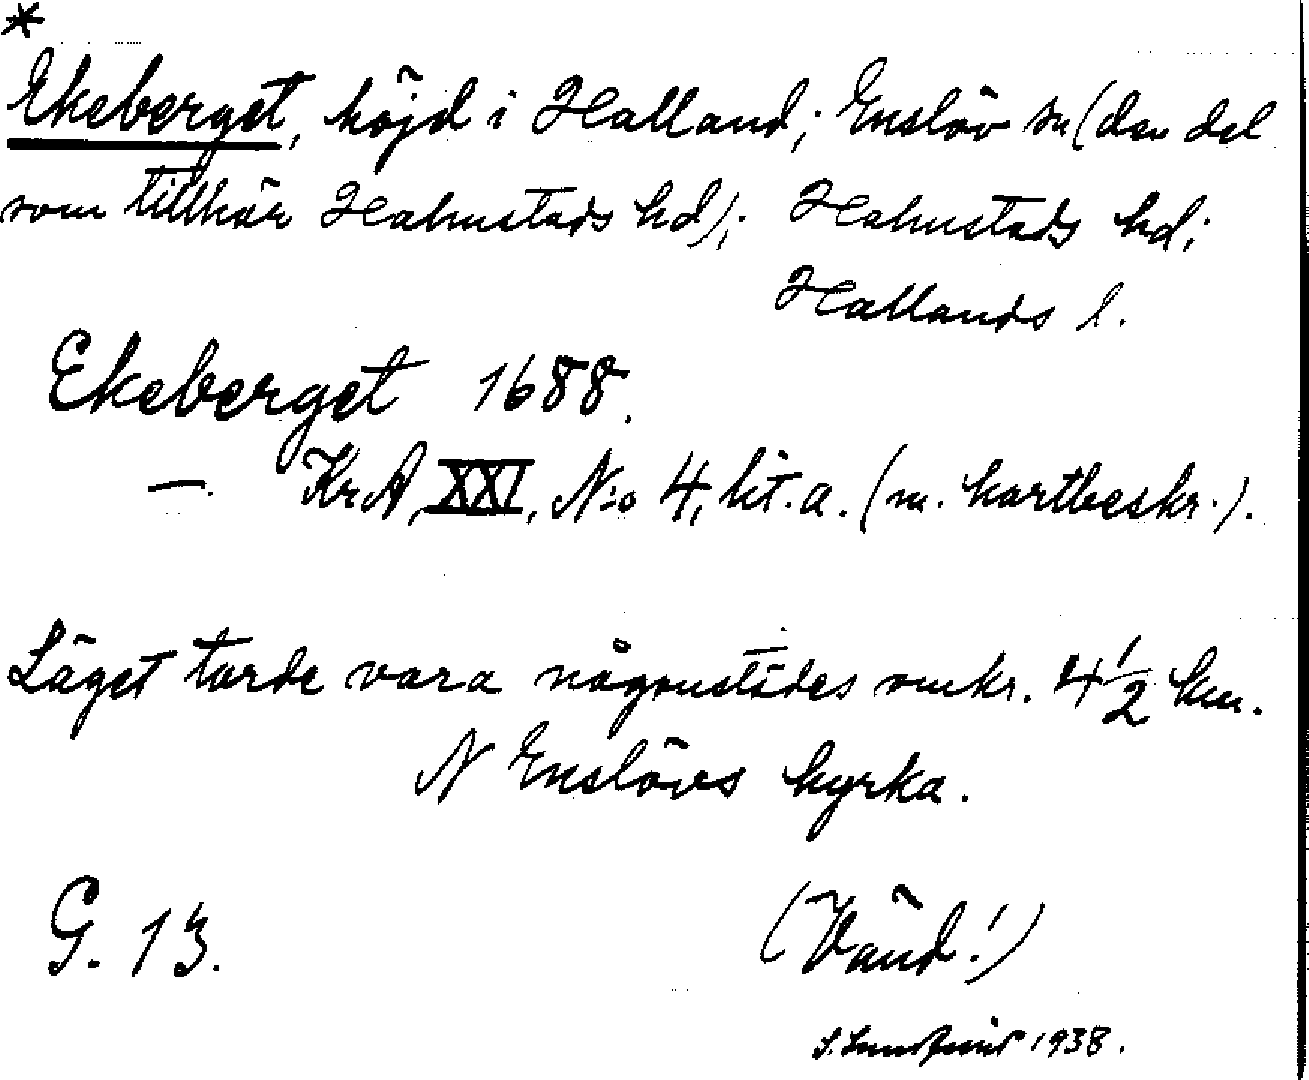 *
Ekeberget, höjd i Halland; Enslöv sn (den del
som tillhör Halmstads hd); Halmstads hd;
Hallands l.
Ekeberget 1688.
— . Kr A, XXI, N:o 4, lit. a. (m. kartbeskr.).
Läget torde vara någonstädes omkr. 4 1/2 km.
N Enslövs kyrka.
G. 13.
(Vänd!)
1938.